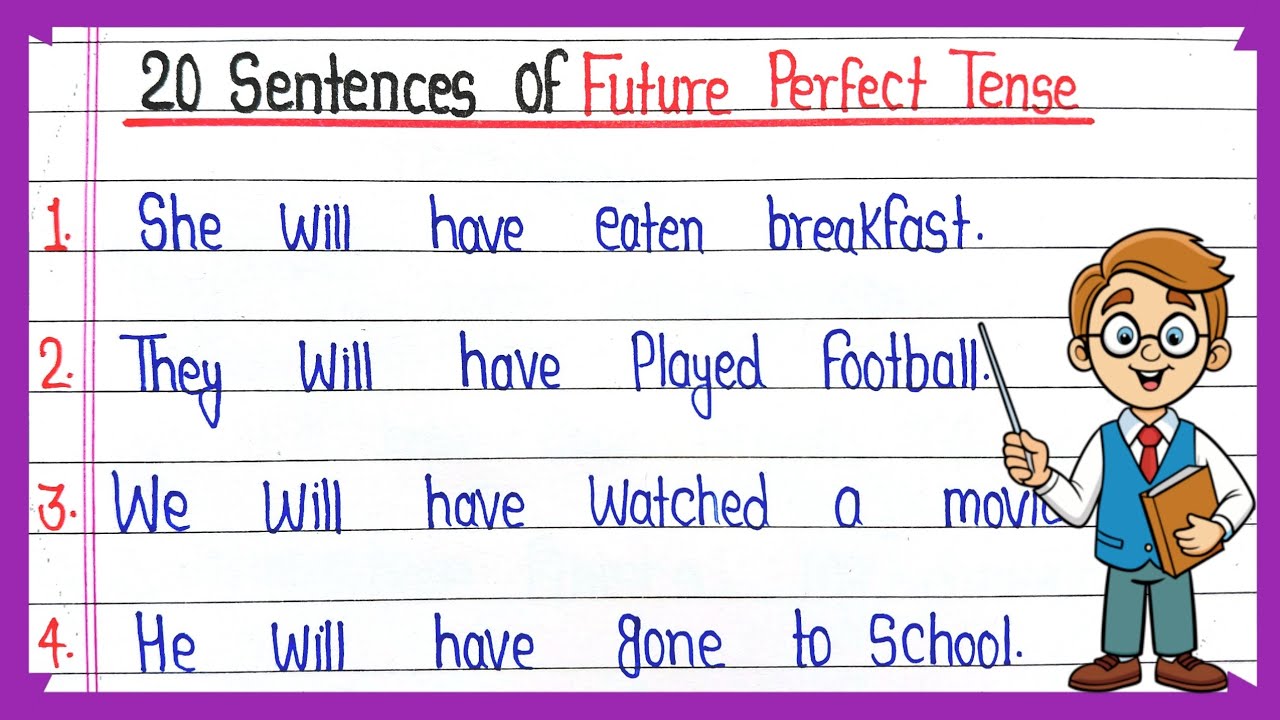 20 Sentences of Future Perfect Tense
1. She will have eaten breakfast.
2. They will have Played Football.
3. We will have watched a movie
4. He will have gone to School.